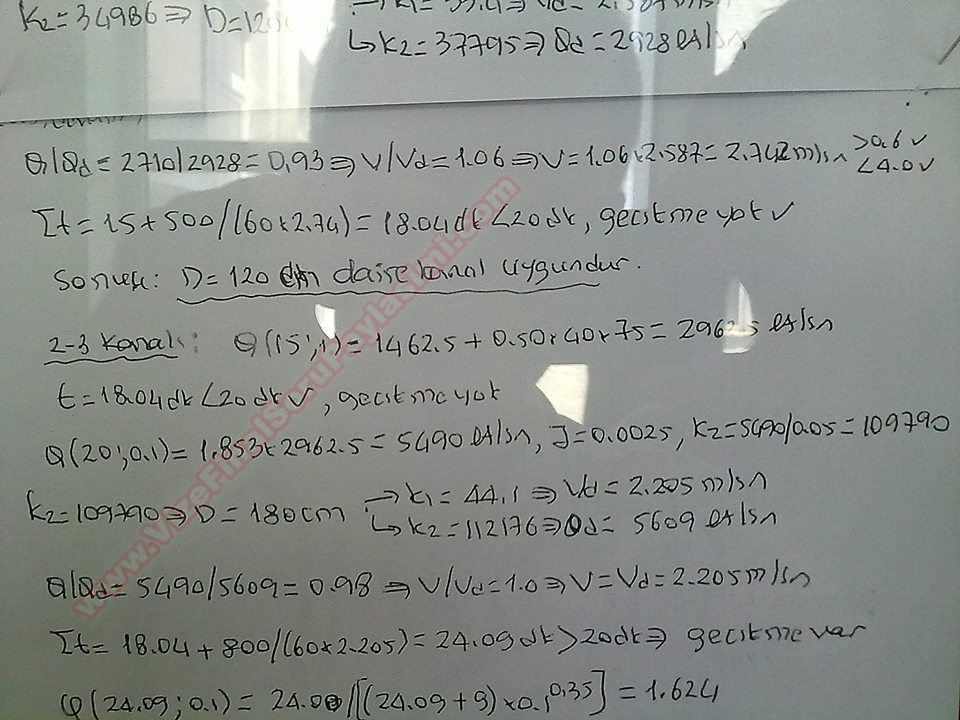 K₂=34986⇒ D=120
→K₁=
↳K₂=37795⇒Qd=2928 lt/sn
Q/Qd=2710/2928=0.93⇒V/Vd=1.06⇒V=1.06×2.587=2.742m/sn >0.6 ✓ <4.0 ✓
Σt=15+500/(60×2.74)=18.04dk<20dk, gecıtme yok ✓
Sonuç: D=120 cm daire kanal uygundur.
2-3 Kanalı: Q(15';1)=1462.5+0.50×40×75=2962.5 lt/sn
t=18.04dk<20dk ✓, gecıtme yok
Q(20';0.1)=1.853×2962.5=5490 lt/sn, J=0.0025, K₂=5490/0.05=109790
K₂=109790⇒D=180cm →K₁=44.1⇒Vd=2.205m/sn
↳K₂=112176⇒Qd=5609 lt/sn
Q/Qd=5490/5609=0.98⇒V/Vd=1.0⇒V=Vd=2.205m/sn
Σt=18.04+800/(60×2.205)=24.09dk>20dk⇒ gecıtme var
φ(24.09;0.1)=24.00/[(24.09+9)×0.1^0.35]=1.624
www.VizeFinalSoruPaylasimi.com